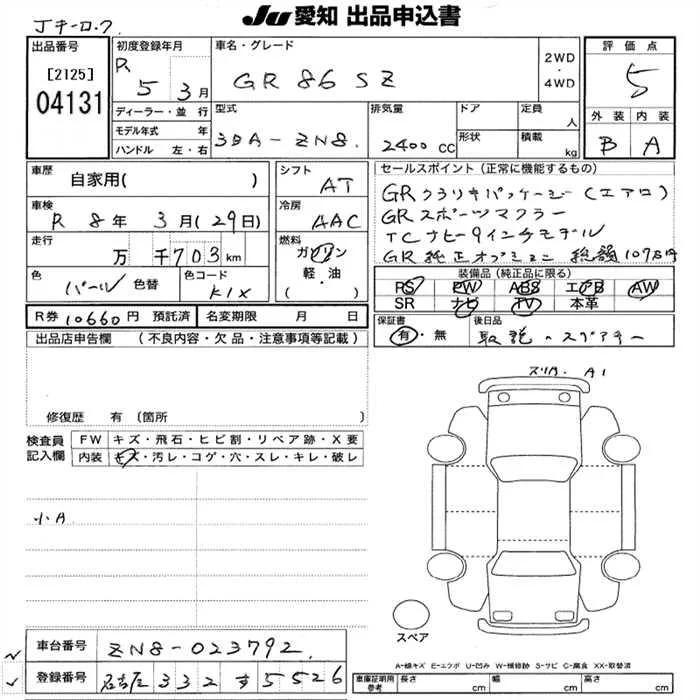 JU 愛知 出品申込書
出品番号
[2125]
04131
初度登録年月
R 5 3 月
車名・グレード
GR 86 SZ
2WD
・
4WD
評価点
5
外装 内装
B A
ディーラー・並行
モデル年式 年
ハンドル 左・右
型式
3BA-ZN8
排気量
2400 CC
ドア
形状
定員
人
積載
kg
車歴
自家用( )
車検
R 8 年 3 月(29日)
走行
万 千 703 km
色
パール 色替
色コード
K1X
シフト
AT
冷房
AAC
燃料
ガソリン
軽・油
( )
セールスポイント(正常に機能するもの)
(エアロ)
GR スポーツマフラー
GR 純正オプミラー 総額107万円
装備品(純正品に限る)
PS PW ABS エアB AW
SR ナビ TV 本革
保証書
有・無
後日品
取説
R券 10660 円 預託済
名変期限 月 日
出品店申告欄 (不良内容・欠品・注意事項等記載)
修復歴 有 (箇所
検査員
記入欄
FW キズ・飛石・ヒビ割・リペア跡・X要
内装 キズ・汚レ・コゲ・穴・スレ・キレ・破レ
小A
A1
スペア
車台番号
ZN8-023792
登録番号
名古屋 332 す 5526
A-線キズ E-エクボ U-凹み W-補修跡 S-サビ C-腐食 XX-取替済
車庫証明用
参考
長さ cm
幅 cm
高さ cm